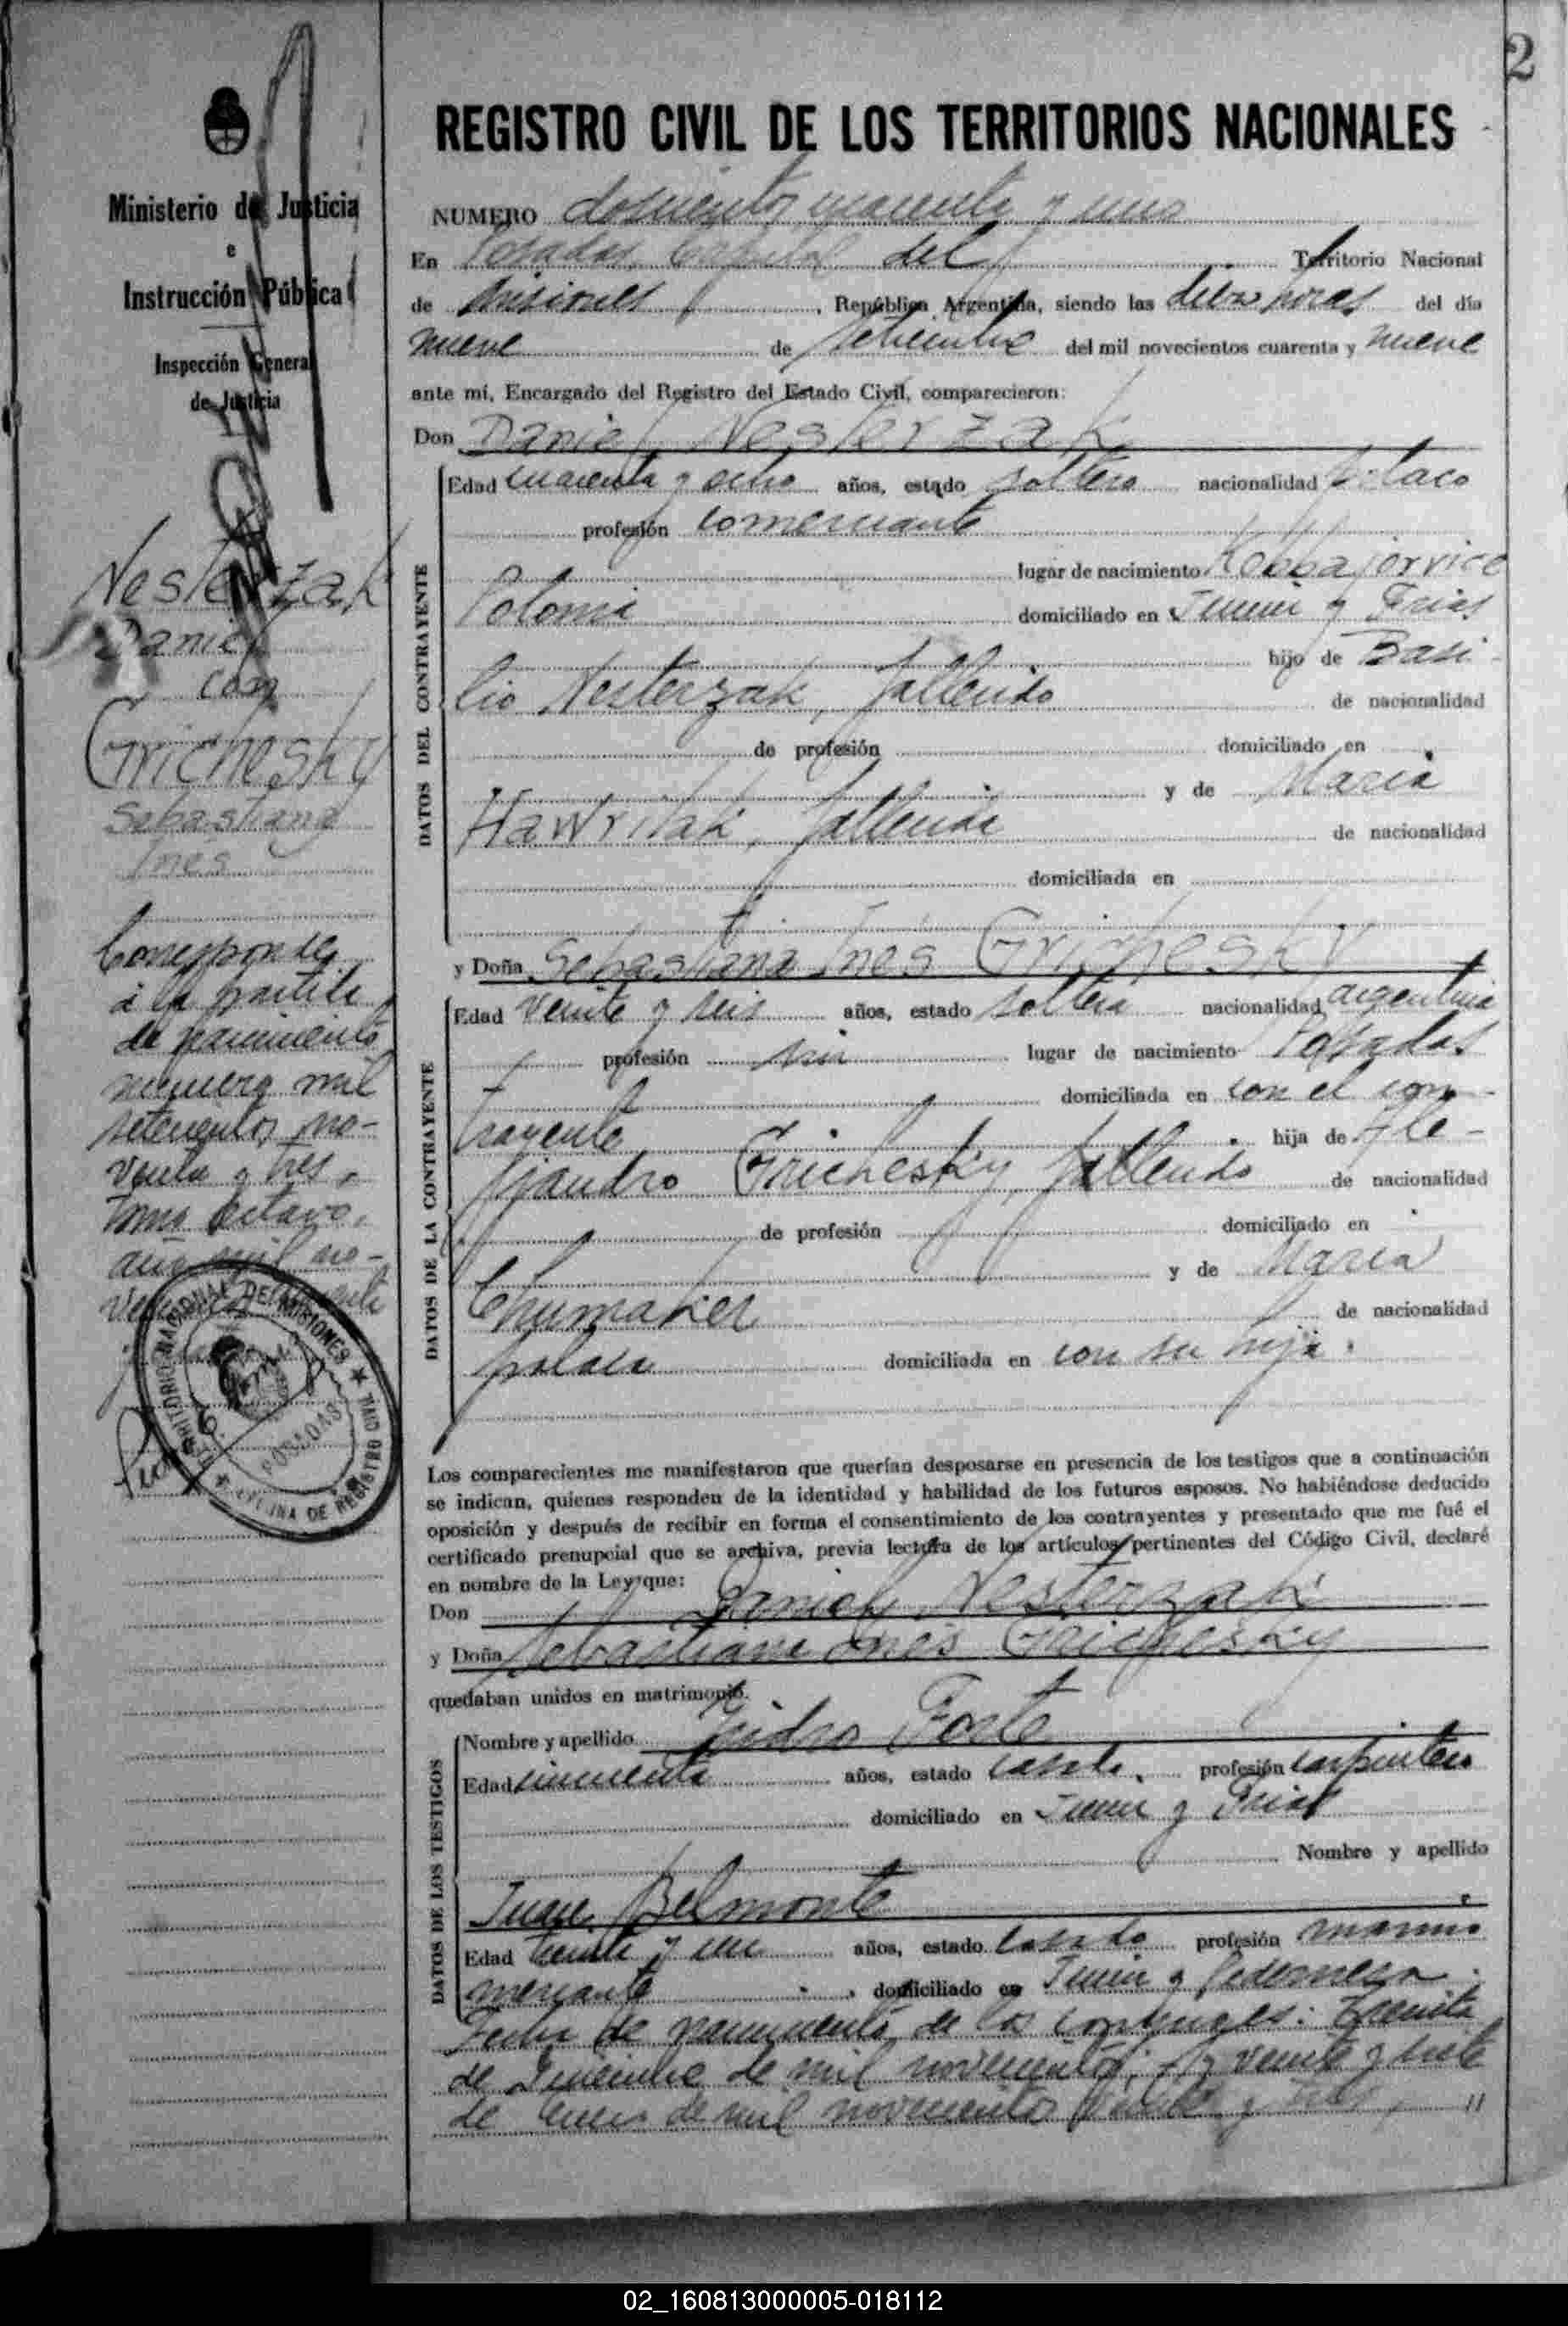 2
Ministerio de Justicia
e
Instrucción Pública
Inspección General
de Justicia
Nesterzak
Daniel
con
Grichesky
Sebastiana
Inés
Corresponde
á la partida
de nacimiento
número mil
setecientos no-
venta y tres,
tomo octavo,
año mil no-
TERRITORIO NACIONAL DE MISIONES
OFICINA DE REGISTRO CIVIL
POSADAS
REGISTRO CIVIL DE LOS TERRITORIOS NACIONALES
NUMERO doscientos cuarenta y uno
En Posadas, Capital del Territorio Nacional
de Misiones, República Argentina, siendo las diez horas del día
nueve de setiembre del mil novecientos cuarenta y nueve
ante mí, Encargado del Registro del Estado Civil, comparecieron:
Don Daniel Nesterzak
DATOS DEL CONTRAYENTE
Edad cuarenta y ocho años, estado soltero nacionalidad polaco
profesión comerciante
lugar de nacimiento
Polonia domiciliado en Junin y Frias
hijo de Basi-
lio Nesterzak, fallecido de nacionalidad
de profesión domiciliado en
y de María
Hawrilak, fallecida de nacionalidad
domiciliada en
y Doña Sebastiana Inés Grichesky
DATOS DE LA CONTRAYENTE
Edad veinte y seis años, estado soltera nacionalidad argentina
profesión sin lugar de nacimiento Posadas
domiciliada en con el con-
trayente hija de Ale-
jandro Grichesky, fallecido de nacionalidad
de profesión domiciliado en
y de María
Chumaker de nacionalidad
polaca domiciliada en con su hija.
Los comparecientes me manifestaron que querían desposarse en presencia de los testigos que a continuación
se indican, quienes responden de la identidad y habilidad de los futuros esposos. No habiéndose deducido
oposición y después de recibir en forma el consentimiento de los contrayentes y presentado que me fué el
certificado prenupcial que se archiva, previa lectura de los artículos pertinentes del Código Civil, declaré
en nombre de la Ley que:
Don Daniel Nesterzak
y Doña Sebastiana Inés Grichesky
quedaban unidos en matrimonio.
DATOS DE LOS TESTIGOS
Nombre y apellido Isidro Forte
Edad cincuenta años, estado casado, profesión carpintero
domiciliado en Junin y Frias
Nombre y apellido
Juan Belmonte
Edad treinta y un años, estado casado profesión marino
mercante, domiciliado en Junin y Pedernera.
Fecha de nacimiento de los conyuges: treinta
de Diciembre de mil novecientos; y veinte y siete
de Enero de mil novecientos veinte y tres,
02_160813000005-018112